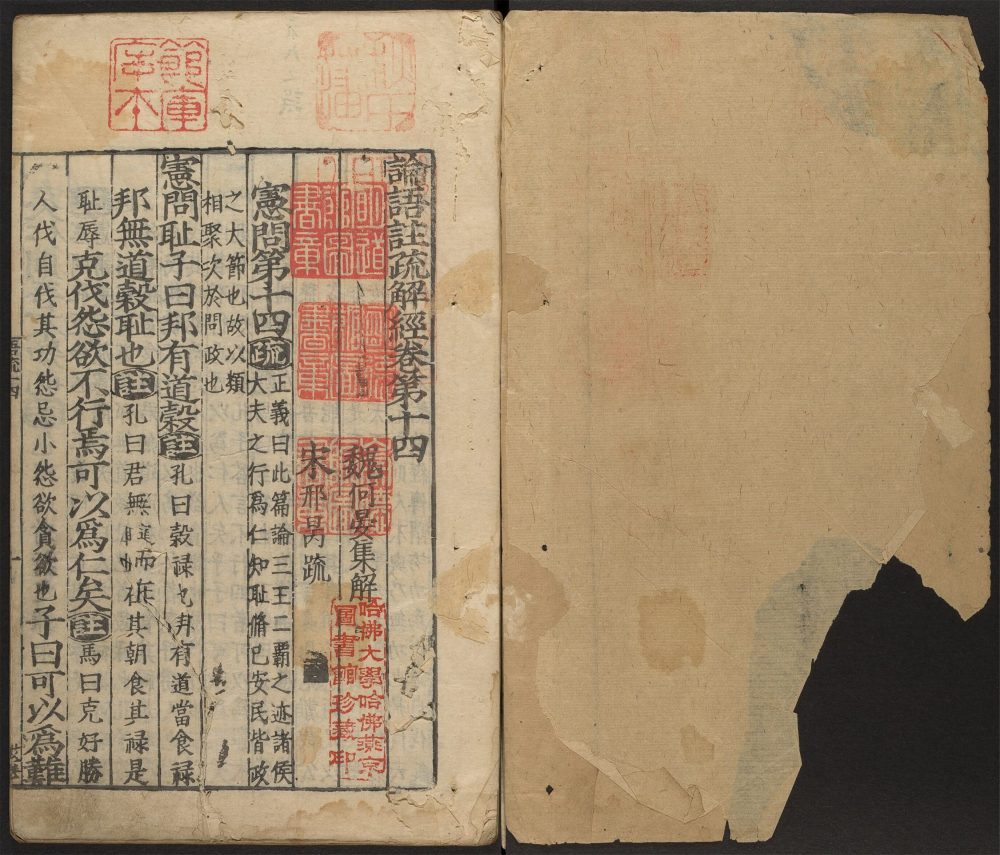 論語註疏解經卷第十四
魏何晏集解
宋邢昺疏
憲問第十四 疏 正義曰此篇論三王二霸之迹諸侯
大夫之行爲仁知恥脩己安民皆政
之大節也故以類
相聚次於問政也
憲問恥子曰邦有道穀 註 孔曰穀祿也邦有道當食祿
邦無道穀恥也 註 孔曰君無道而在其朝食其祿是
恥辱 克伐怨欲不行焉可以爲仁矣 註 馬曰克好勝
人伐自伐其功怨忌小怨欲貪欲也 子曰可以爲難
哈佛大學哈佛燕京
圖書館珍藏印